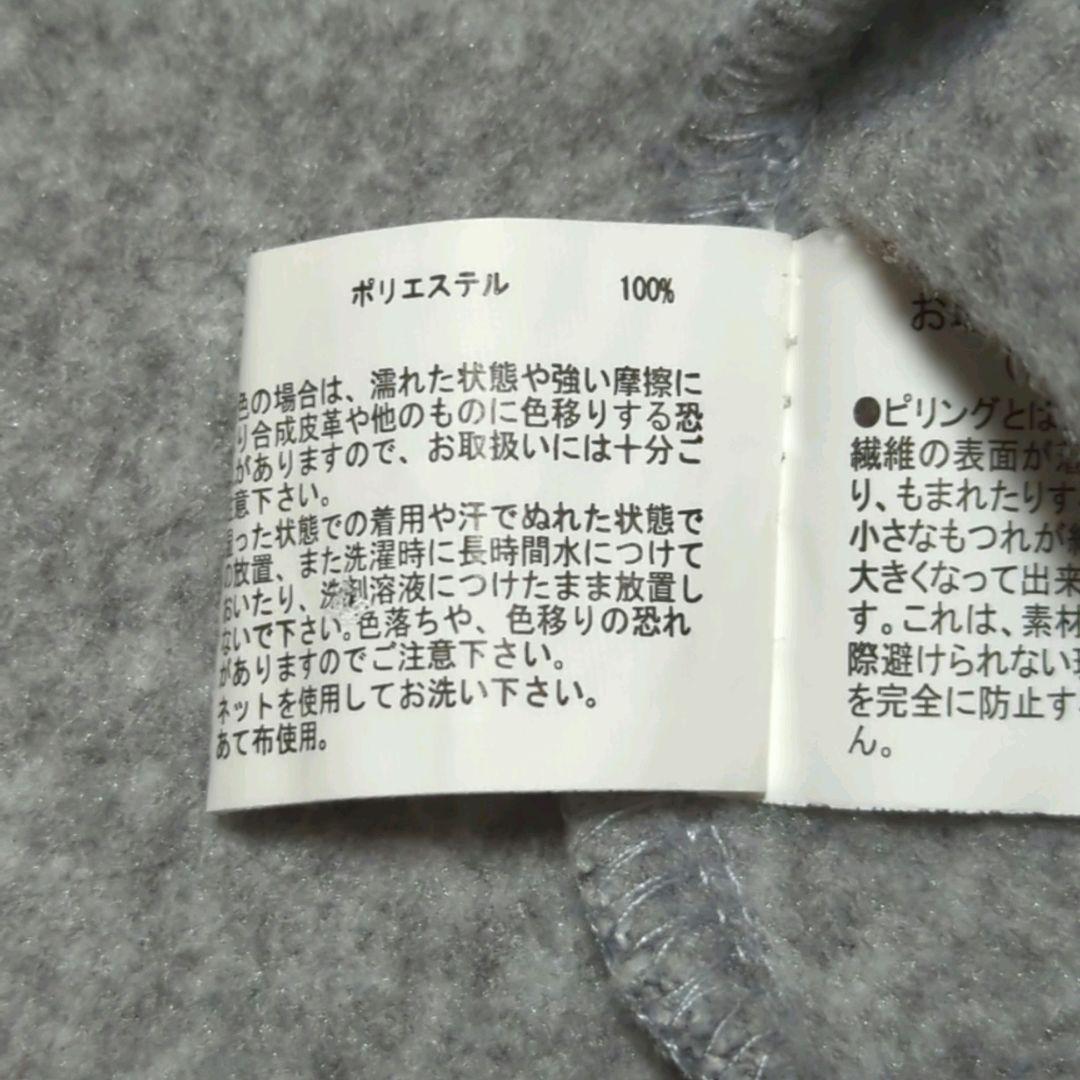 ポリエステル 100%
色の場合は、濡れた状態や強い摩擦に
り合成皮革や他のものに色移りする恐
がありますので、お取扱いには十分ご
意下さい。
湿った状態での着用や汗でぬれた状態で
の放置、また洗濯時に長時間水につけて
おいたり、洗剤溶液につけたまま放置し
ないで下さい。色落ちや、色移りの恐れ
がありますのでご注意下さい。
ネットを使用してお洗い下さい。
あて布使用。
お
●ピリングとは
繊維の表面が
り、もまれたりす
小さなもつれが
大きくなって出来
す。これは、素材
際避けられない
を完全に防止す
ん。